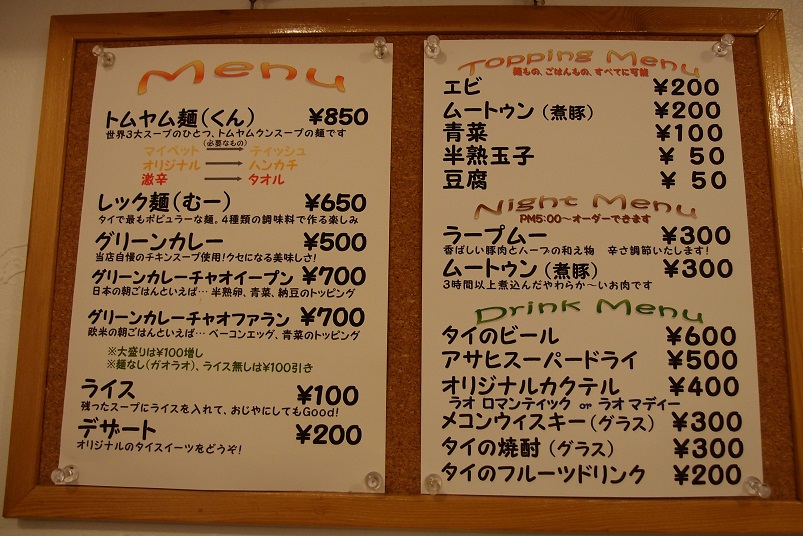 Menu
トムヤム麺(くん) ¥850
世界3大スープのひとつ、トムヤムクンスープの麺です
(必要なもの)
マイペット → ティッシュ
オリジナル → ハンカチ
激辛 → タオル
レック麺(むー) ¥650
タイで最もポピュラーな麺。4種類の調味料で作る楽しみ
グリーンカレー ¥500
当店自慢のチキンスープ使用!クセになる美味しさ!
グリーンカレーチャオイープン ¥700
日本の朝ごはんといえば… 半熟卵、青菜、納豆のトッピング
グリーンカレーチャオファラン ¥700
欧米の朝ごはんといえば… ベーコンエッグ、青菜のトッピング
※大盛りは¥100増し
※麺なし(ガオラオ)、ライス無しは¥100引き
ライス ¥100
残ったスープにライスを入れて、おじやにしてもGood!
デザート ¥200
オリジナルのタイスイーツをどうぞ!
Topping Menu
麺もの、ごはんもの、すべてに可能
エビ ¥200
ムートゥン(煮豚) ¥200
青菜 ¥100
半熟玉子 ¥ 50
豆腐 ¥ 50
Night Menu
PM5:00~オーダーできます
ラープムー ¥300
香ばしい豚肉とハーブの和え物 辛さ調節いたします!
ムートゥン(煮豚) ¥300
3時間以上煮込んだやわらか~いお肉です
Drink Menu
タイのビール ¥600
アサヒスーパードライ ¥500
オリジナルカクテル ¥400
ラオ ロマンティック or ラオ マディー
メコンウイスキー(グラス) ¥300
タイの焼酎(グラス) ¥300
タイのフルーツドリンク ¥200